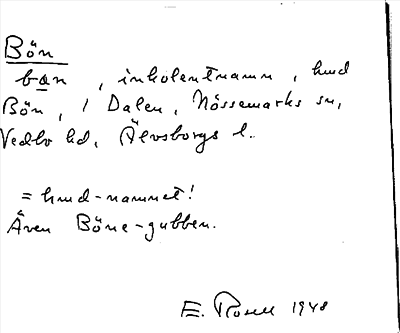 Bön
bœn, inholentnamn, hmd
Bön, i Dalen, Nössemarks sn,
Vedbo hd, Älvsborgs l.
= hmd-namnet!
Även Böne-gubben.
E. Rosell 1948